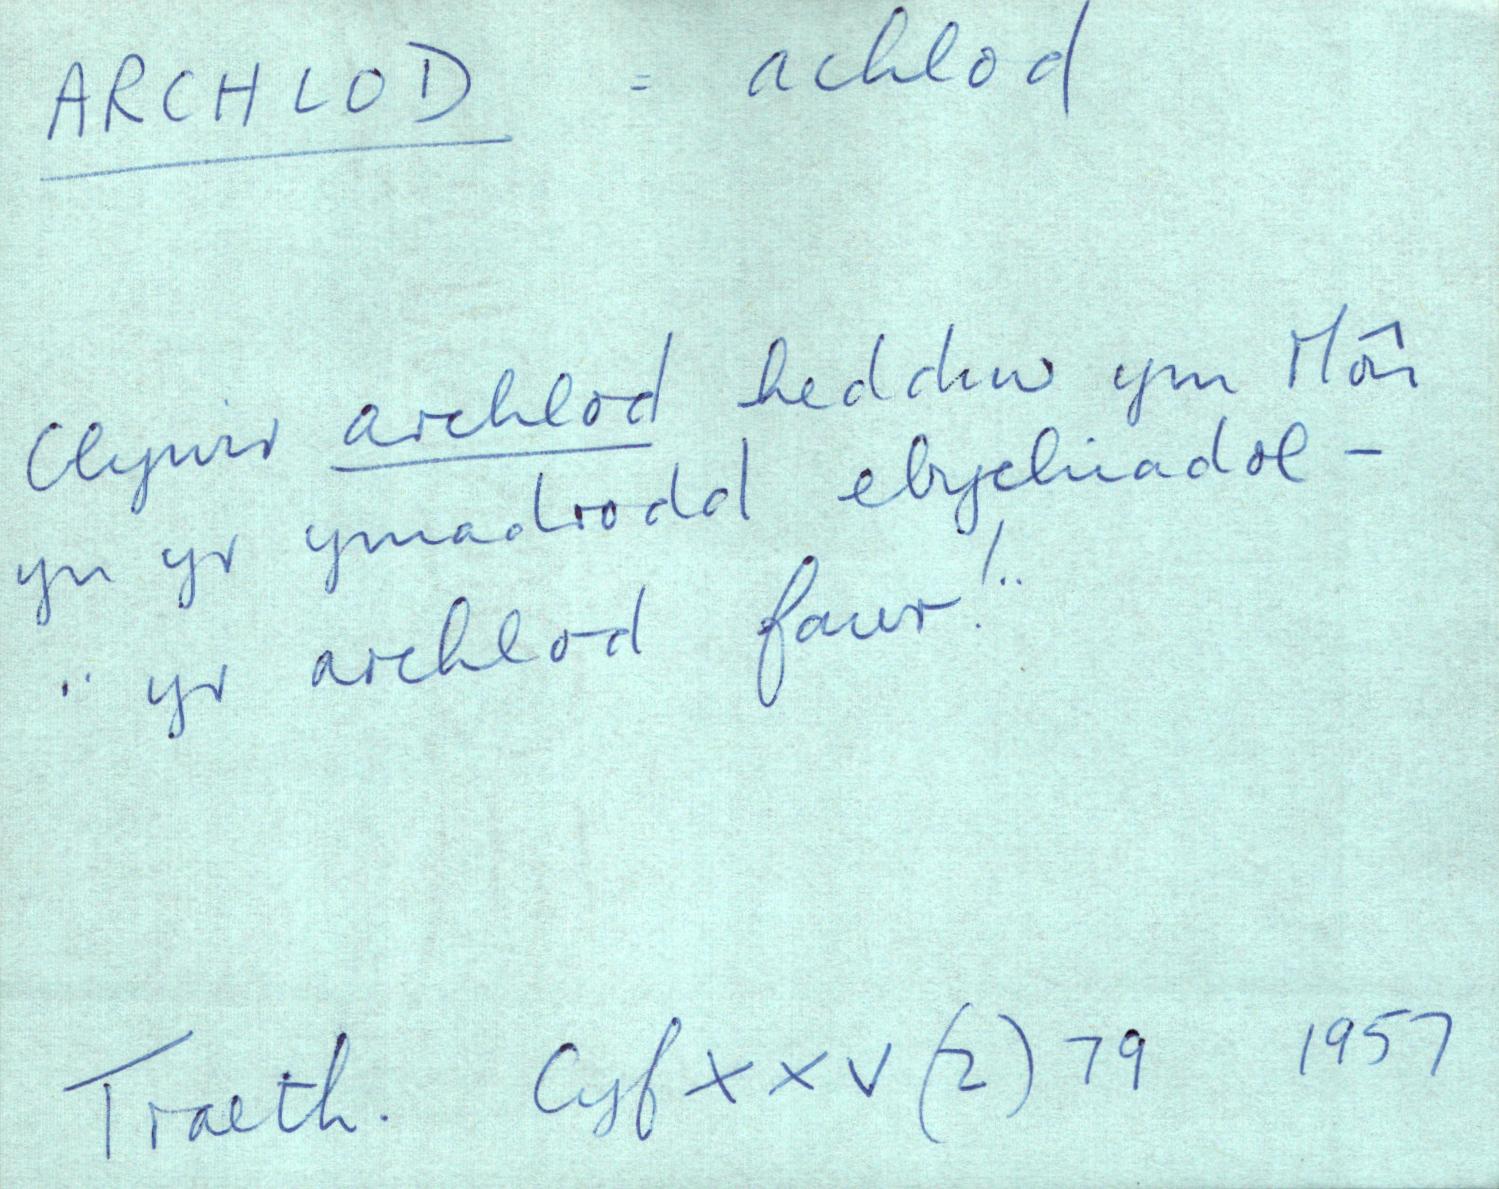 ARCHLOD = achlod
Clywir archlod heddiw ym Môn
yn yr ymadrodd ebychiadol -
" yr archlod fawr!"
Traeth. Cyf XXV (2) 79 1957